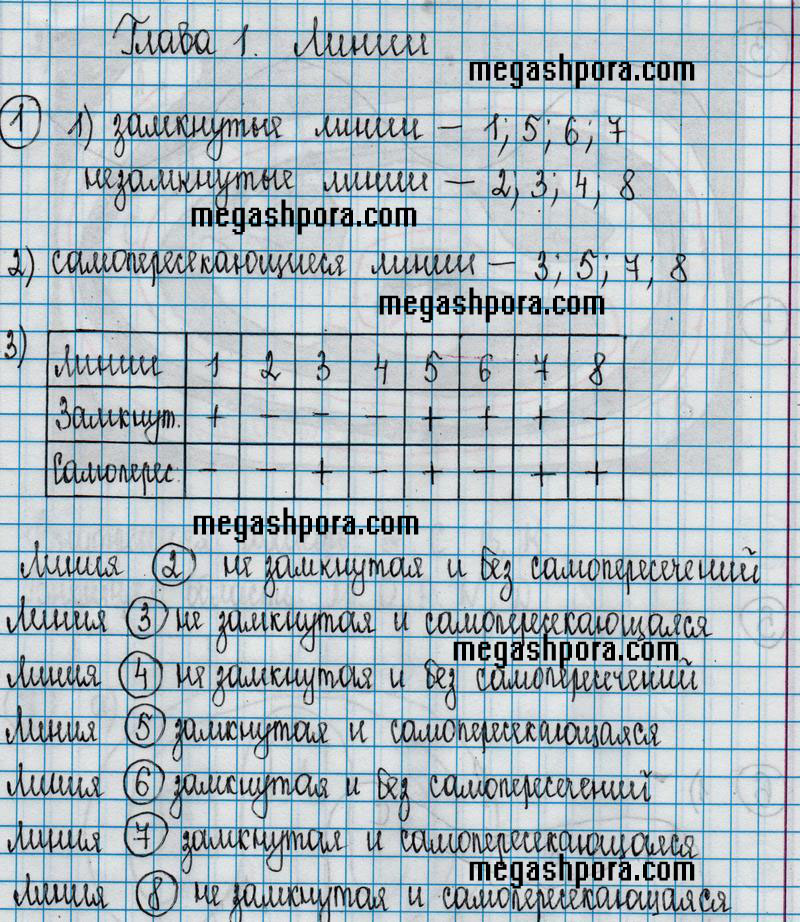 Глава 1. Линии
megashpora.com
1 1) замкнутые линии – 1; 5; 6; 7
незамкнутые линии – 2; 3; 4; 8
megashpora.com
2) самопересекающиеся линии – 3; 5; 7; 8
megashpora.com
3)
Линии 1 2 3 4 5 6 7 8
Замкнут. + – – – + + + –
Самоперес. – – + – + – + +
megashpora.com
Линия 2 не замкнутая и без самопересечений
Линия 3 не замкнутая и самопересекающаяся
megashpora.com
Линия 4 не замкнутая и без самопересечений
Линия 5 замкнутая и самопересекающаяся
Линия 6 замкнутая и без самопересечений
Линия 7 замкнутая и самопересекающаяся
megashpora.com
Линия 8 не замкнутая и самопересекающаяся